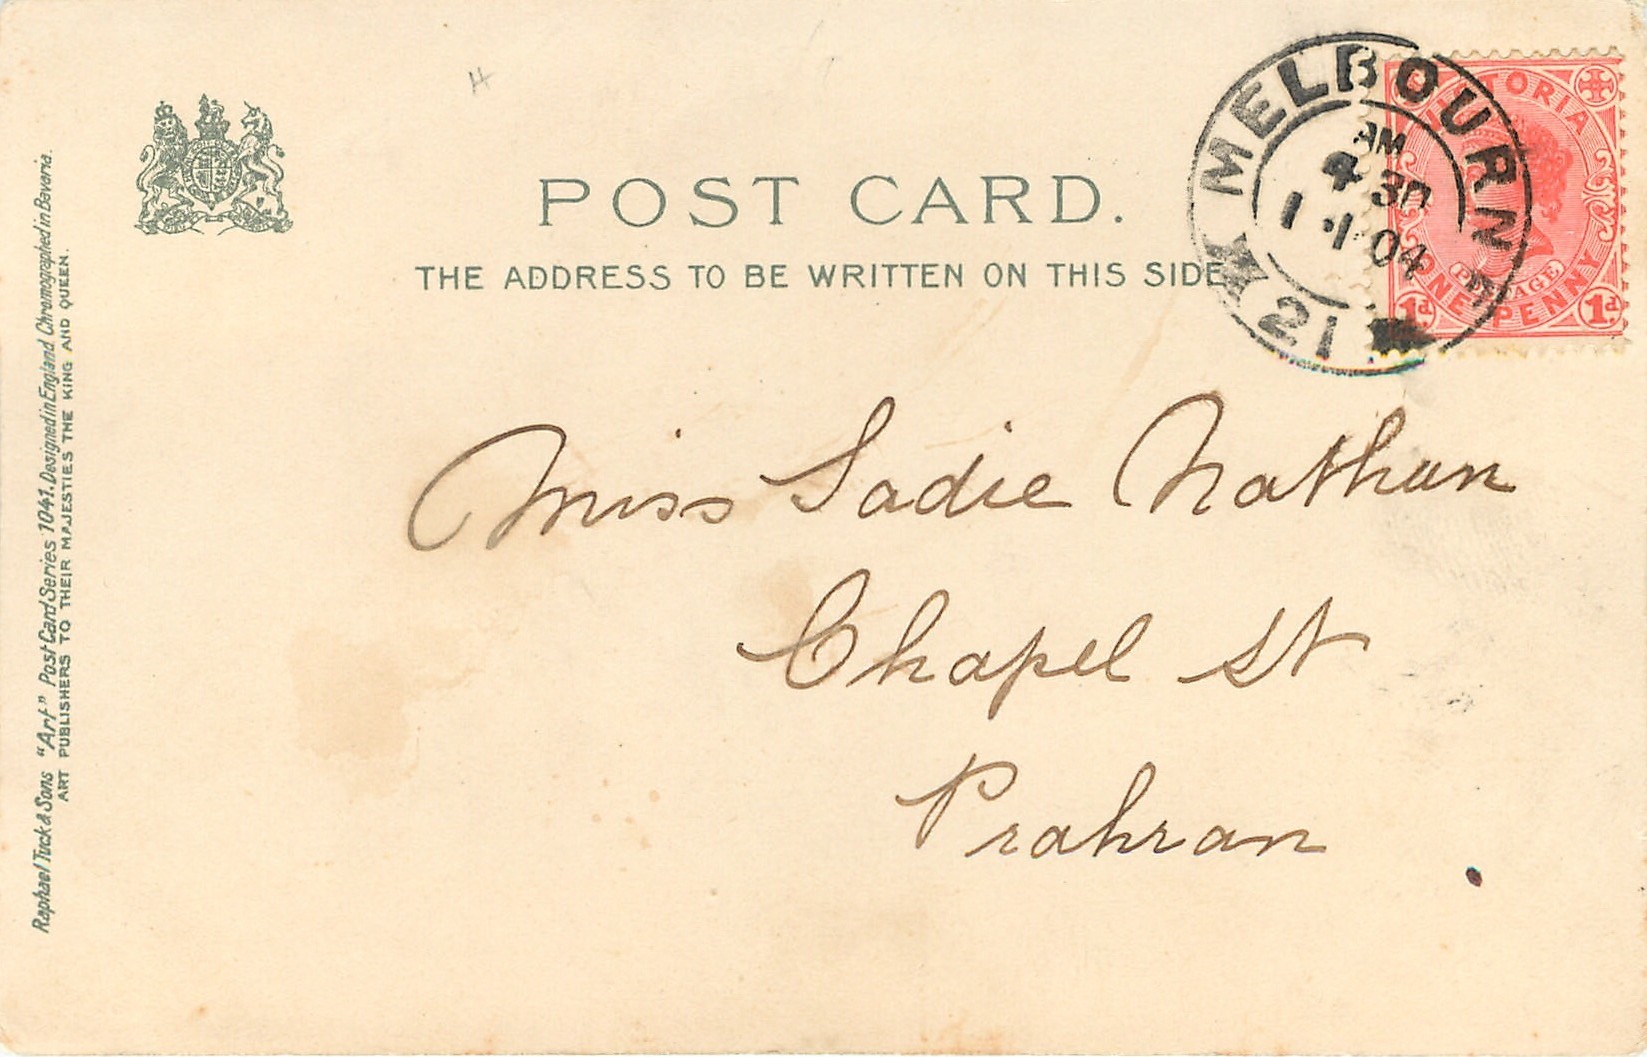 POST CARD.
THE ADDRESS TO BE WRITTEN ON THIS SIDE
MELBOURNE
AM
4 30
1 · 1 04
21
VICTORIA
POSTAGE
ONE PENNY
1d 1d
Miss Sadie Nathan
Chapel St
Prahran
Raphael Tuck & Sons "Art" Post Card Series 1041. Designed in England Chromographed in Bavaria.
ART PUBLISHERS TO THEIR MAJESTIES THE KING AND QUEEN.